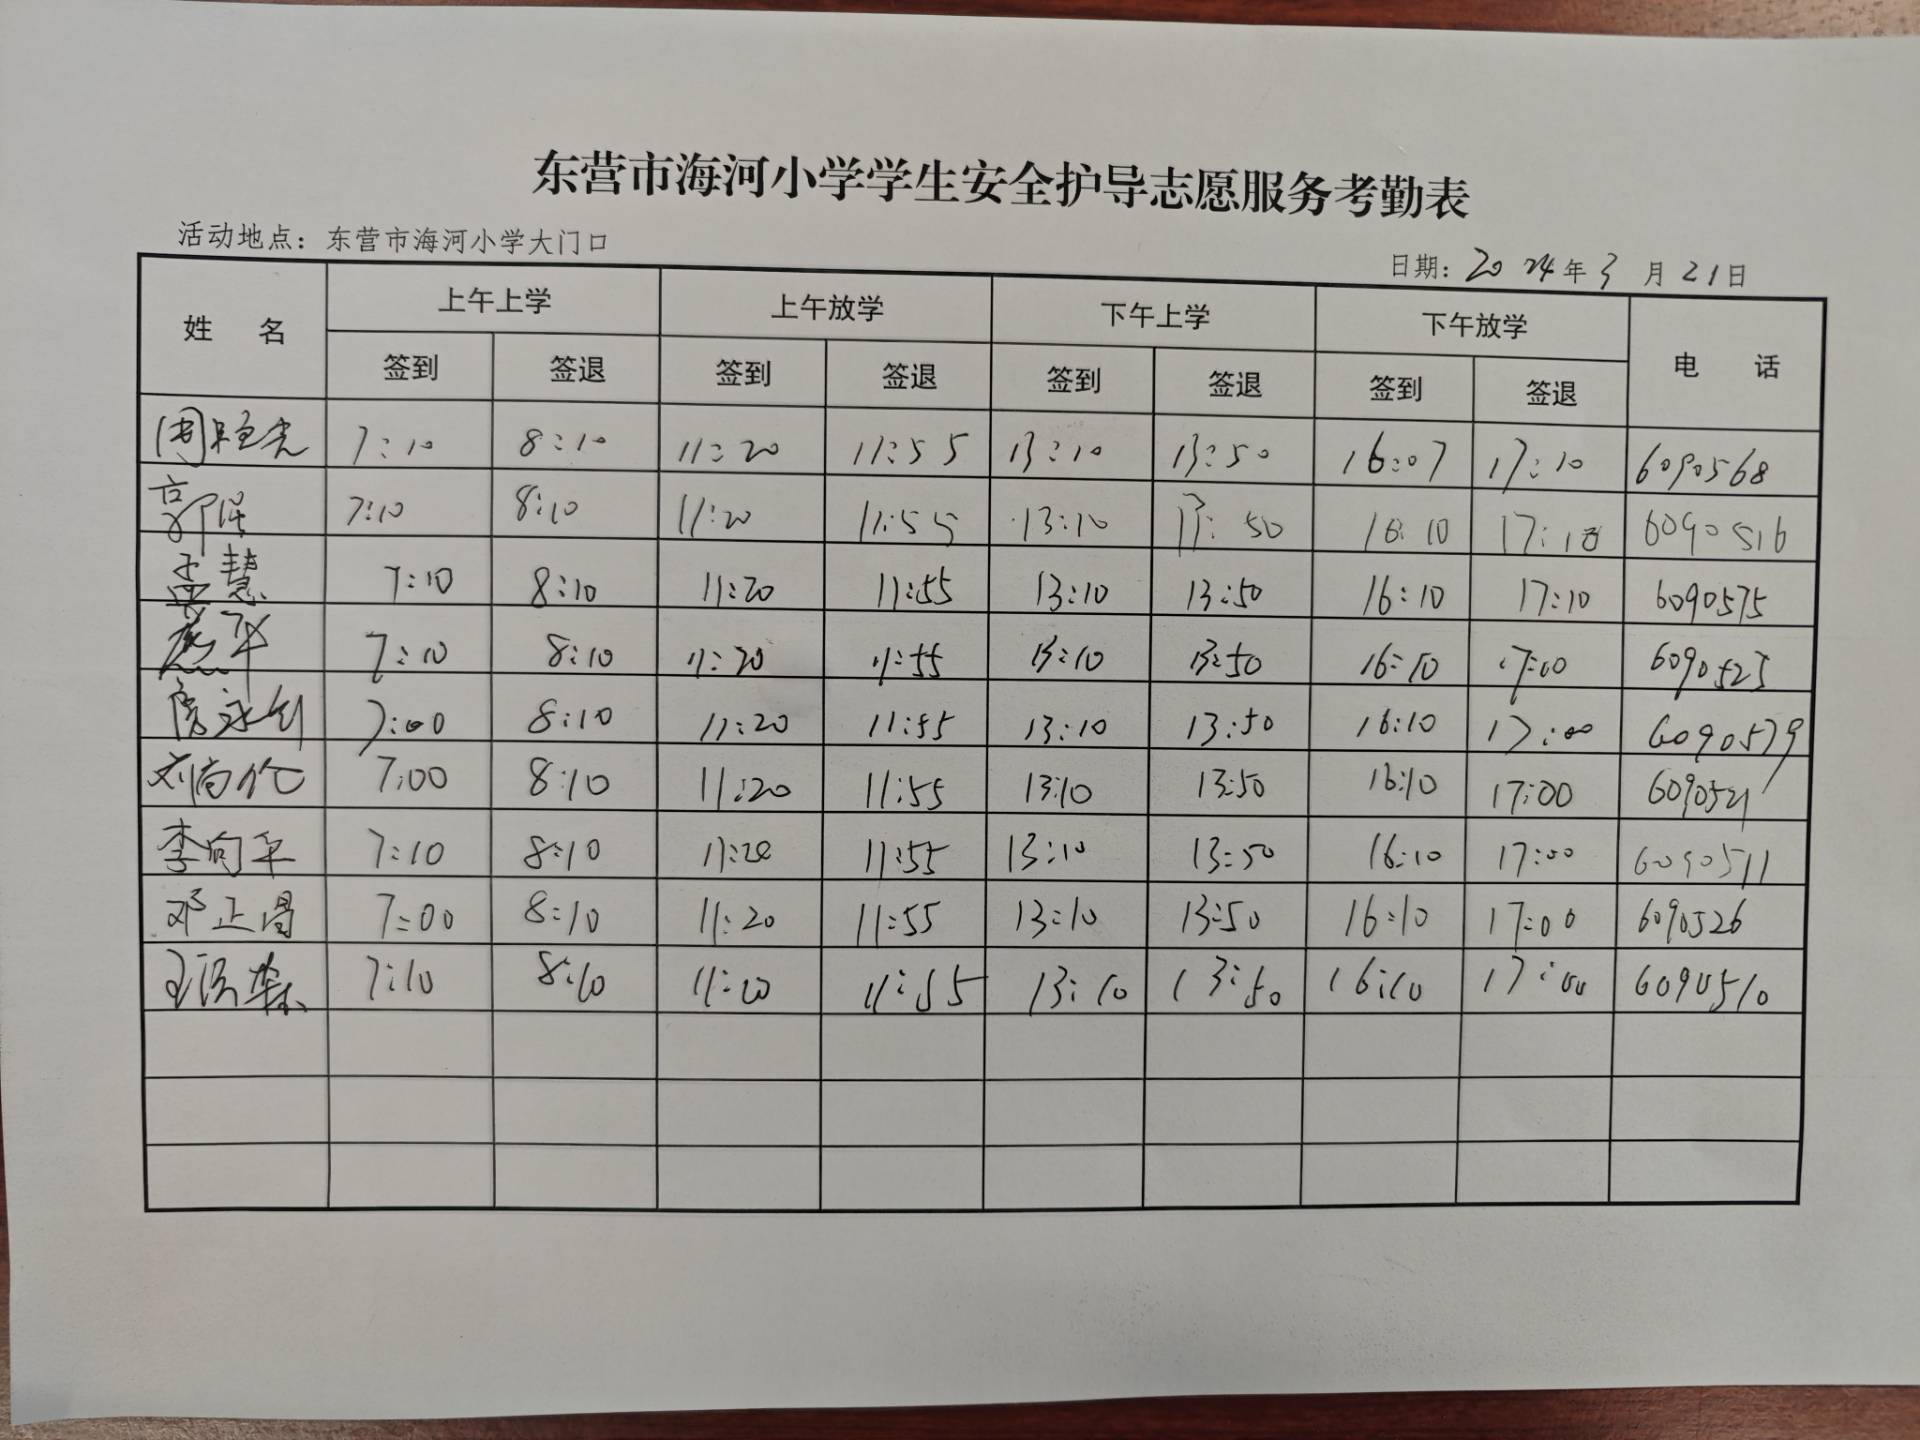 东营市海河小学学生安全护导志愿服务考勤表
活动地点：东营市海河小学大门口
日期：2024年3月21日
姓名 上午上学 上午放学 下午上学 下午放学 电话
签到 签退 签到 签退 签到 签退 签到 签退
周 7:10 8:10 11:20 11:55 13:10 13:50 16:07 17:10 6090568
郭 7:10 8:10 11:20 11:55 13:10 13:50 16:10 17:10 6090516
孟慧 7:10 8:10 11:20 11:55 13:10 13:50 16:10 17:10 6090575
7:10 8:10 11:20 11:55 13:10 13:50 16:10 17:00 6090525
7:00 8:10 11:20 11:55 13:10 13:50 16:10 17:00 6090579
刘尚 7:00 8:10 11:20 11:55 13:10 13:50 16:10 17:00 6090521
李向平 7:10 8:10 11:20 11:55 13:10 13:50 16:10 17:00 6090511
邓正昌 7:00 8:10 11:20 11:55 13:10 13:50 16:10 17:00 6090526
王 7:10 8:10 11:20 11:55 13:10 13:50 16:10 17:00 6090510